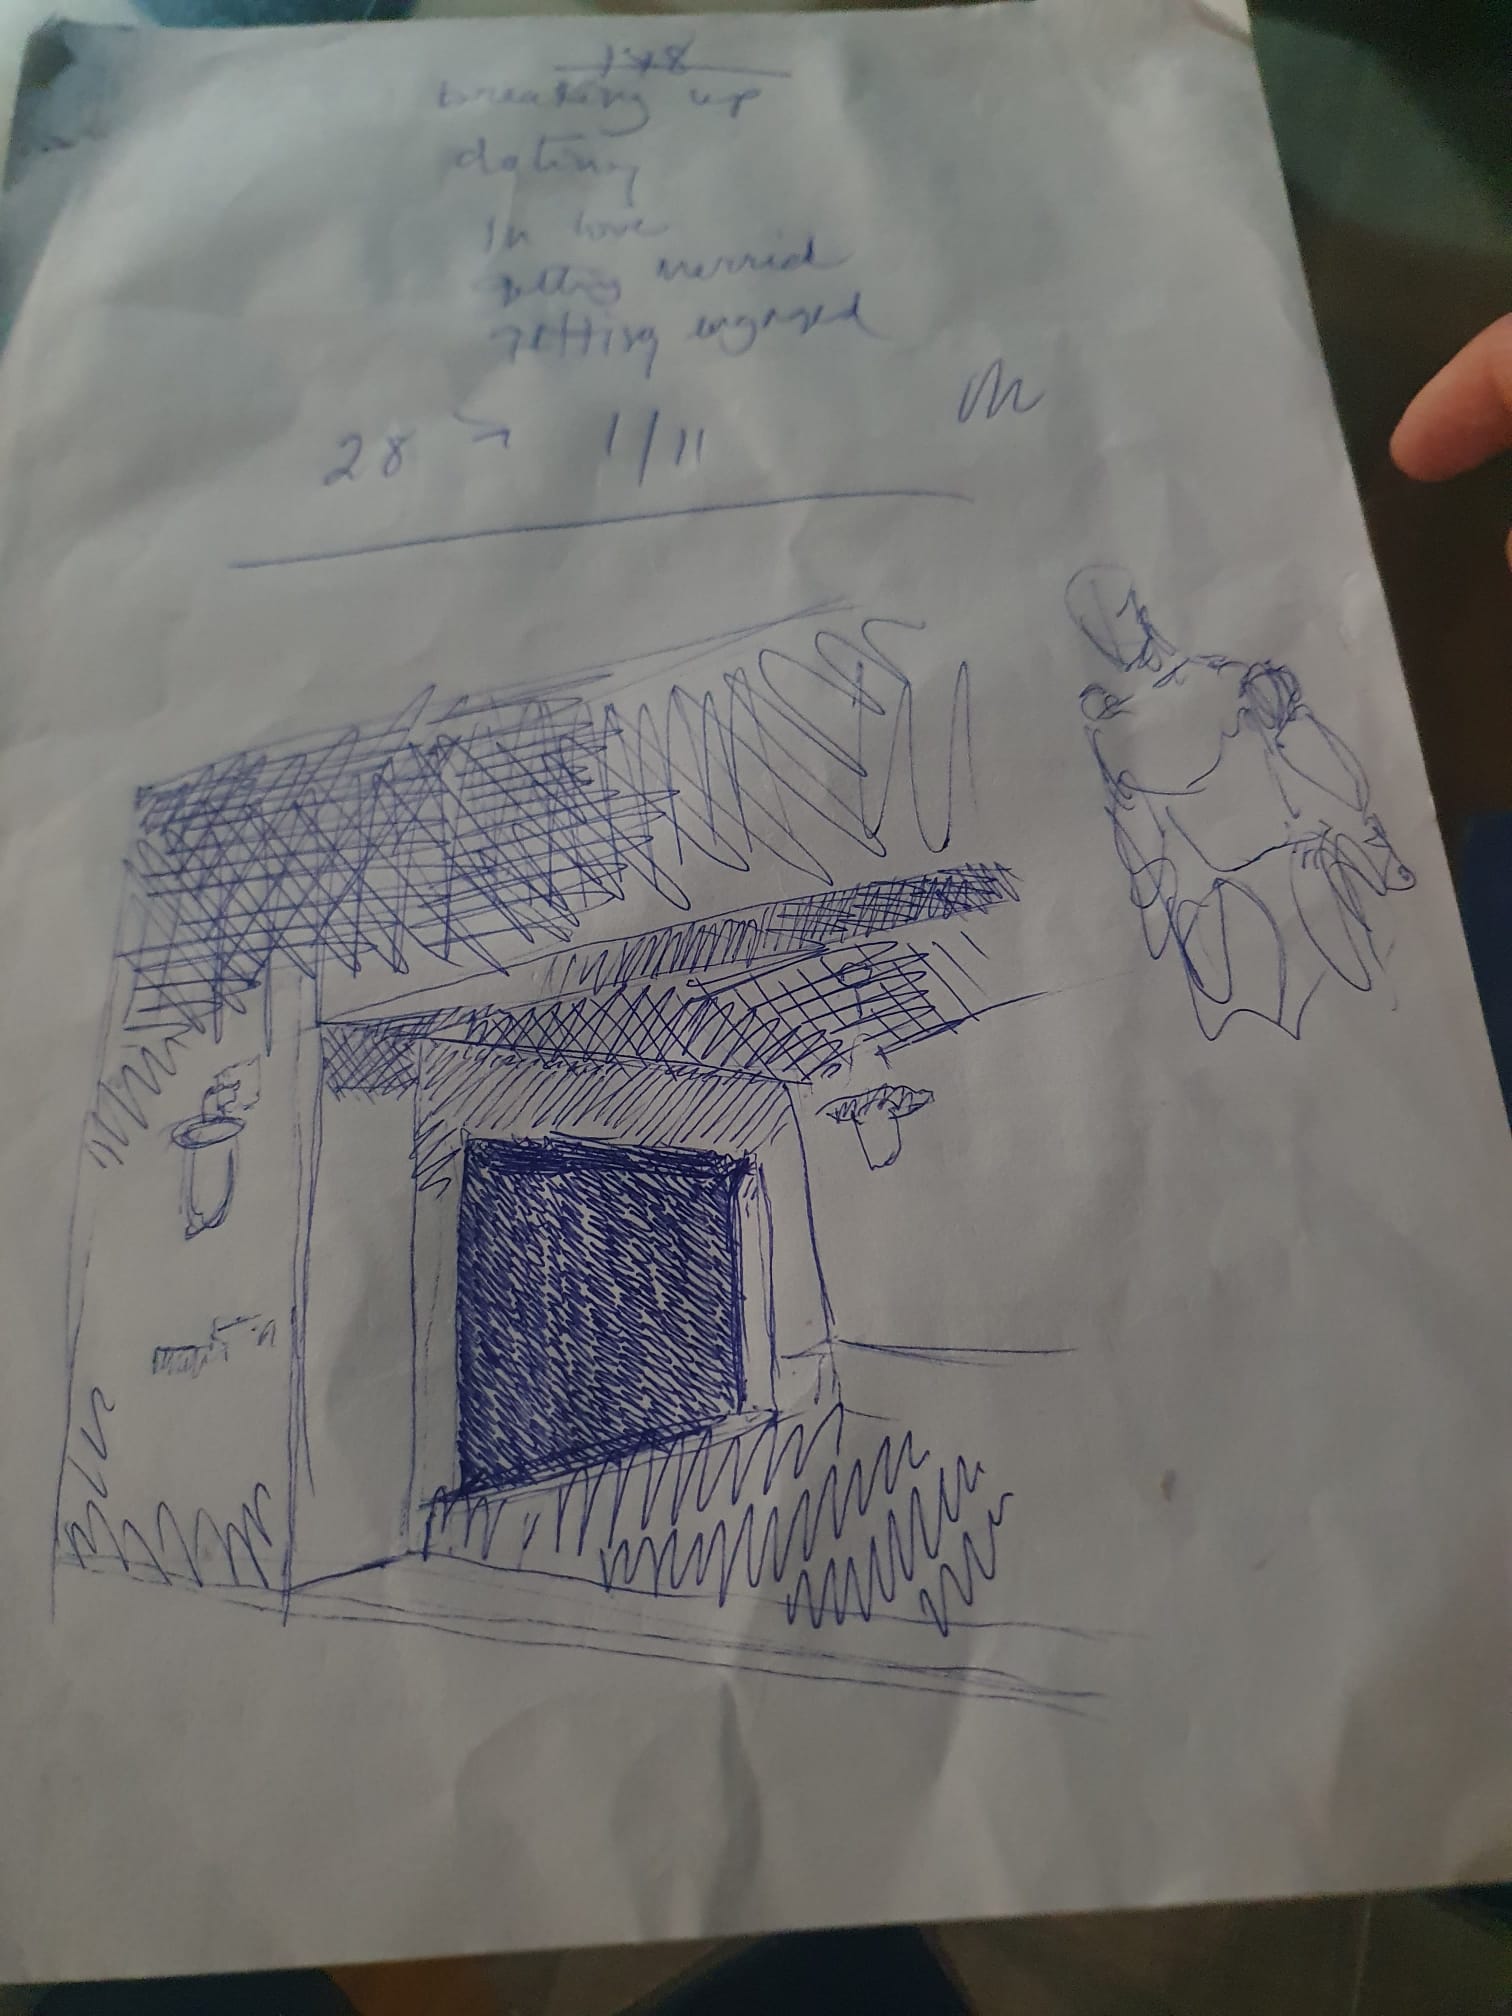 breaking up
dating
In love
getting merried
getting engaged
28 → 1/11